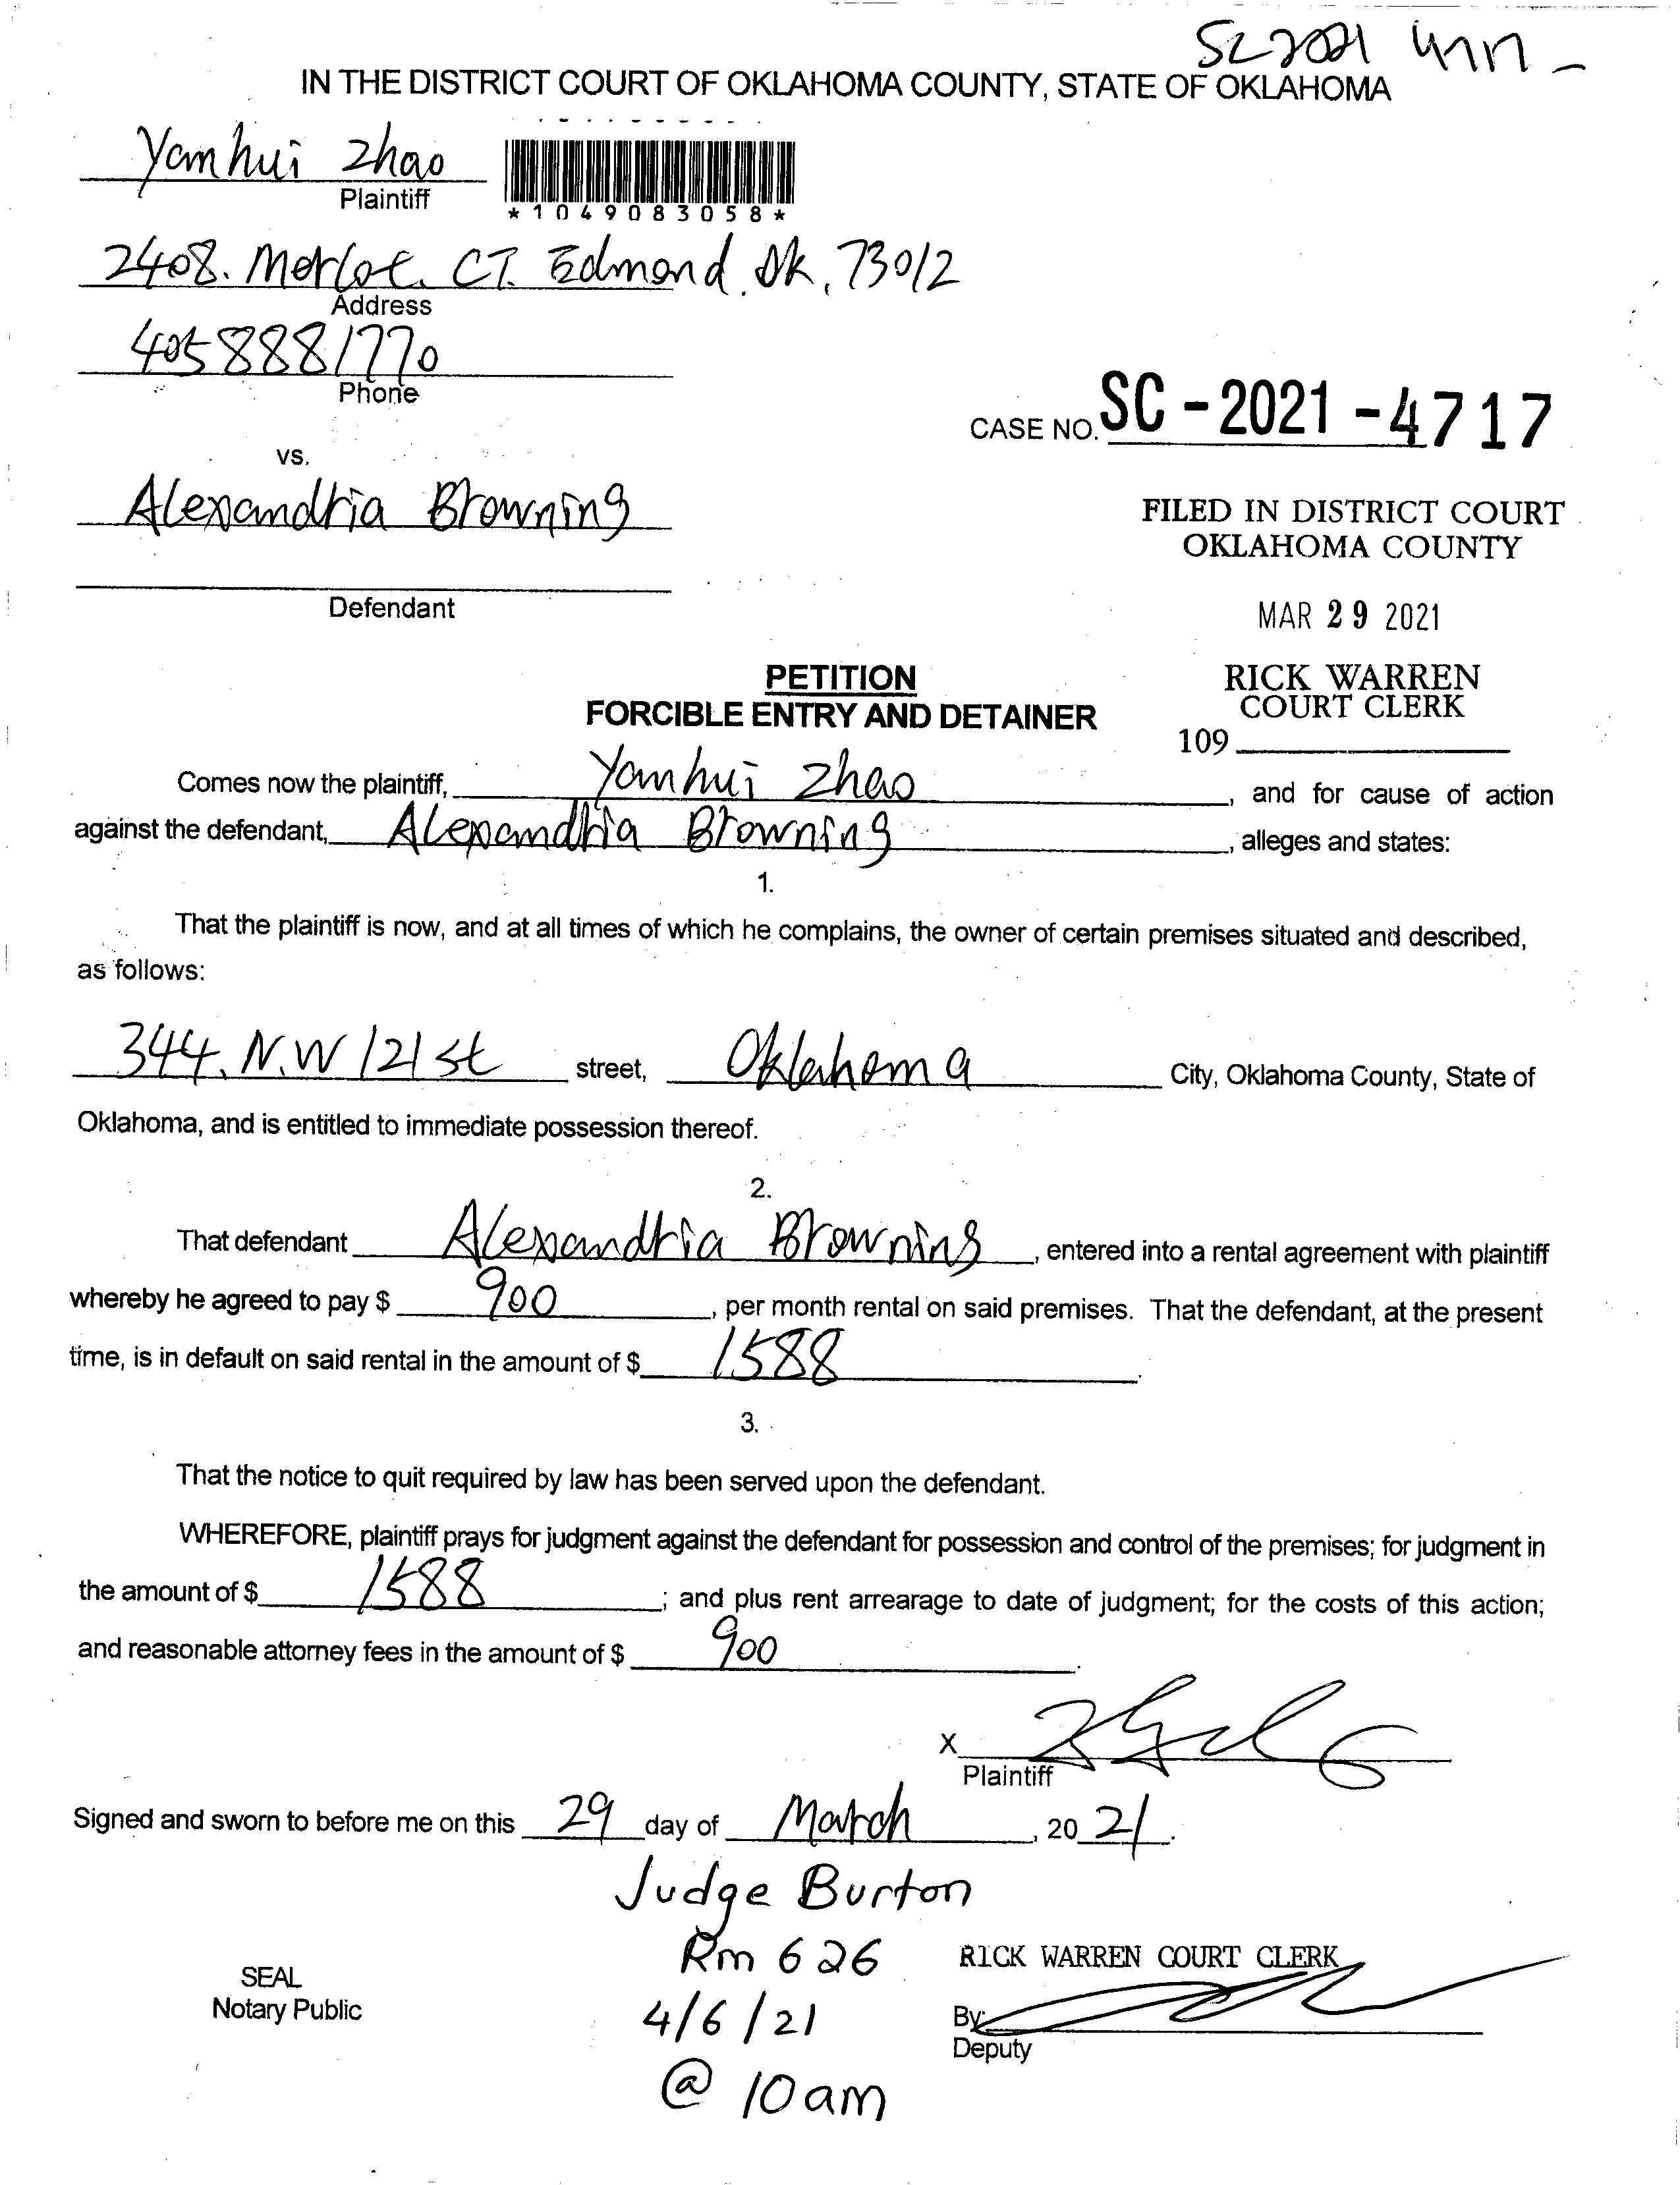 SC 2021 4717 -
IN THE DISTRICT COURT OF OKLAHOMA COUNTY, STATE OF OKLAHOMA
Yanhui Zhao
Plaintiff
*1049083058*
2408. Merlot. CT. Edmond. Ok, 73012
Address
4058881770
Phone
CASE NO. SC-2021-4717
vs.
Alexandria Browning
FILED IN DISTRICT COURT
OKLAHOMA COUNTY
Defendant
MAR 29 2021
PETITION
RICK WARREN
COURT CLERK
FORCIBLE ENTRY AND DETAINER
109
Comes now the plaintiff, Yanhui Zhao, and for cause of action
against the defendant, Alexandria Browning, alleges and states:
1.
That the plaintiff is now, and at all times of which he complains, the owner of certain premises situated and described,
as follows:
344. N.W 121 st street, Oklahoma City, Oklahoma County, State of
Oklahoma, and is entitled to immediate possession thereof.
2.
That defendant Alexandria Browning, entered into a rental agreement with plaintiff
whereby he agreed to pay $ 900, per month rental on said premises. That the defendant, at the present
time, is in default on said rental in the amount of $ 1588.
3.
That the notice to quit required by law has been served upon the defendant.
WHEREFORE, plaintiff prays for judgment against the defendant for possession and control of the premises; for judgment in
the amount of $ 1588; and plus rent arrearage to date of judgment; for the costs of this action;
and reasonable attorney fees in the amount of $ 900.
X
Plaintiff
Signed and sworn to before me on this 29 day of March, 20 21.
Judge Burton
Rm 626
RICK WARREN COURT CLERK
SEAL
Notary Public
4/6/21
By:
Deputy
@ 10am